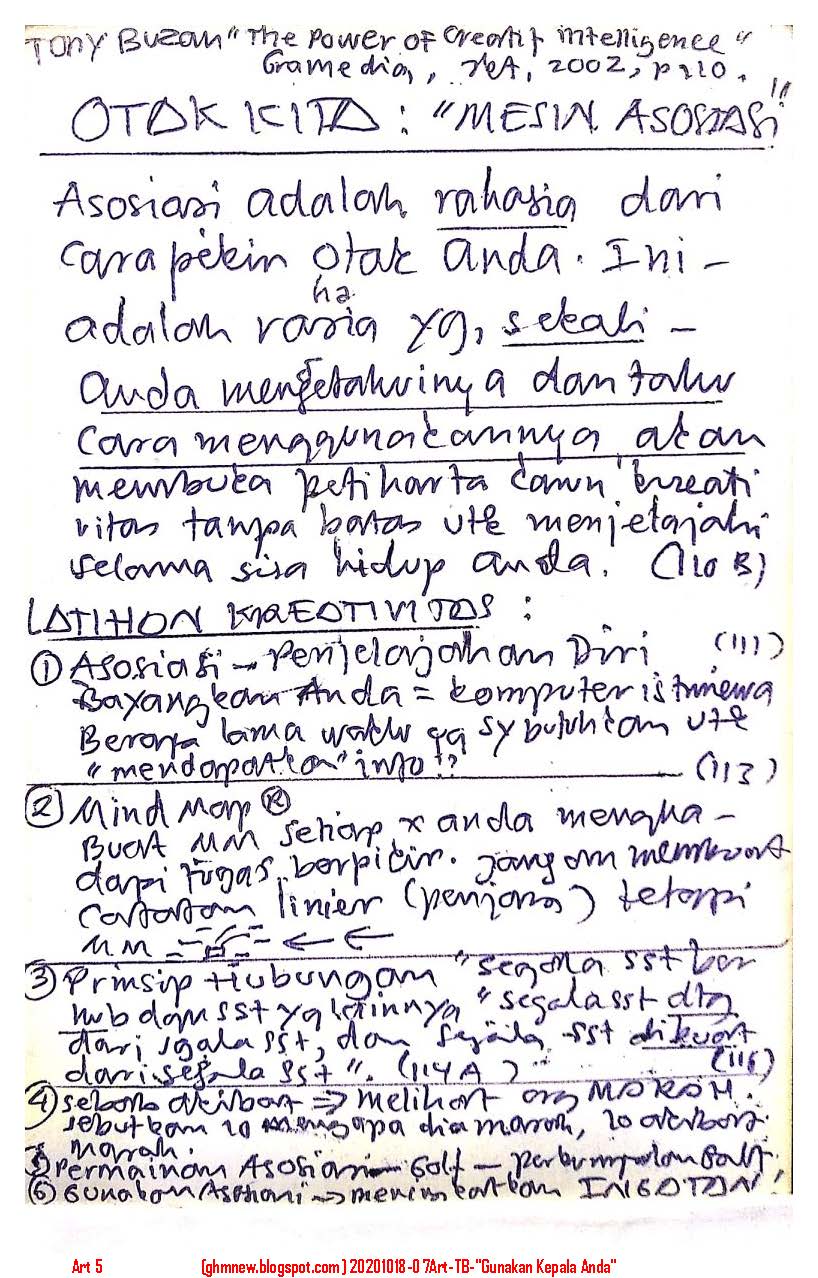 Tony Buzan "The Power of Creatif intelligence"
Gramedia, Jkt, 2002, p 110.
OTAK KITA : "MESIN ASOSIASI"
Asosiasi adalah rahasia dari
cara pikir otak anda. Ini -
ha
adalah rasia yg, sekali -
anda mengetahuinya dan tahu
cara menggunakannya, akan
membuka peti harta kreati
vitas tanpa batas utk menjelajahi
selama sisa hidup anda. (110 B)
LATIHAN KREATIVITAS :
① Asosiasi - Penjelajahan Diri (111)
Bayangkan Anda = komputer istimewa
Berapa lama waktu yg sy butuhkan utk
"mendapatkan" info !? (113)
② Mind Map ®
Buat MM setiap x anda mengha -
dapi tugas berpikir. Jangan membuat
catatan linier (penjang) tetapi
MM ← ←
③ Prinsip Hubungan "segala sst ber
hub dgn sst yg lainnya "segala sst dtg
dari sgala sst, dan segala sst dibuat
dari segala sst". (114 A) (116)
④ sebab akibat ⇒ Melihat org MARAH.
sebutkan 10 mengapa dia marah, 10 akibat
marah.
⑤ Permainan Asosiasi - Golf - perkumpulan Golf.
⑥ Gunakan Asosiasi → meningkatkan INGATAN!
Art 5 (ghmnew.blogspot.com) 20201018-07Art-TB-"Gunakan Kepala Anda"